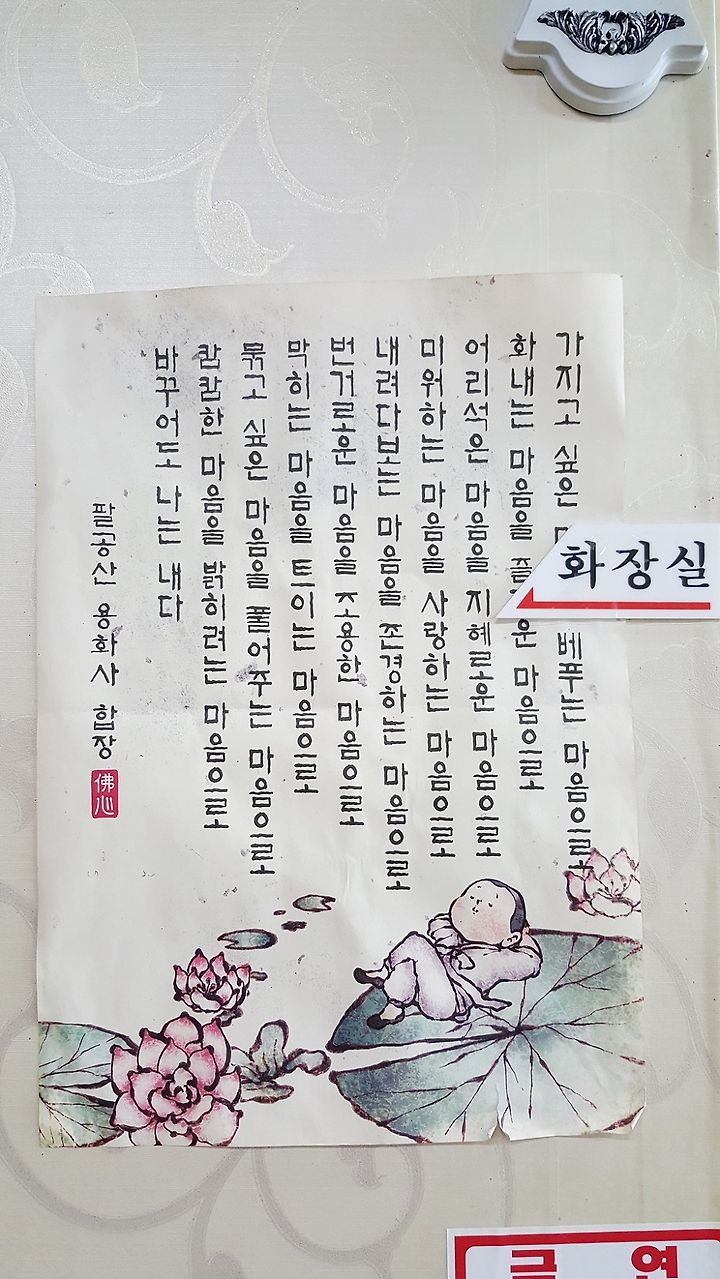 가지고 싶은 베푸는 마음으로
화내는 마음을 마음으로
어리석은 마음을 지혜로운 마음으로
미워하는 마음을 사랑하는 마음으로
내려다보는 마음을 존경하는 마음으로
번거로운 마음을 조용한 마음으로
막히는 마음을 트이는 마음으로
묶고 싶은 마음을 풀어주는 마음으로
캄캄한 마음을 밝히려는 마음으로
바꾸어도 나는 내다
팔공산 용화사 합장
佛心
화장실
금연